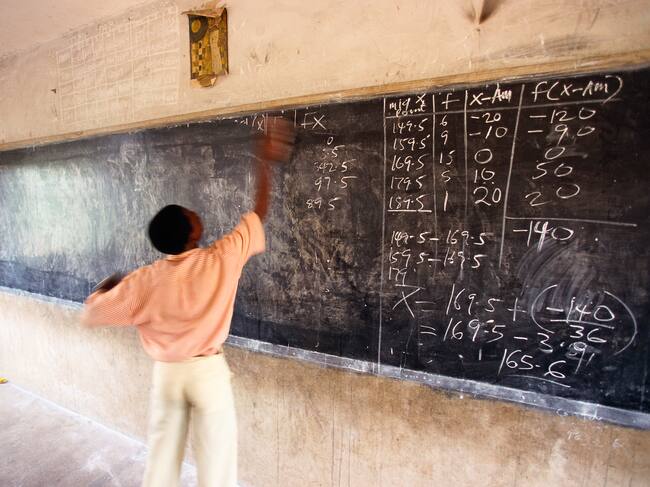 fx
0
42.5
97.5
89.5
mid x point f x-Am f(x-Am)
149.5 6 -20 -120
159.5 9 -10 -90
169.5 15 0 0
179.5 5 10 50
189.5 1 20 20
-140
149.5 - 169.5
159.5 - 169.5
179
X = 169.5 + (-140
36)
= 169.5 - 3.91
165.6